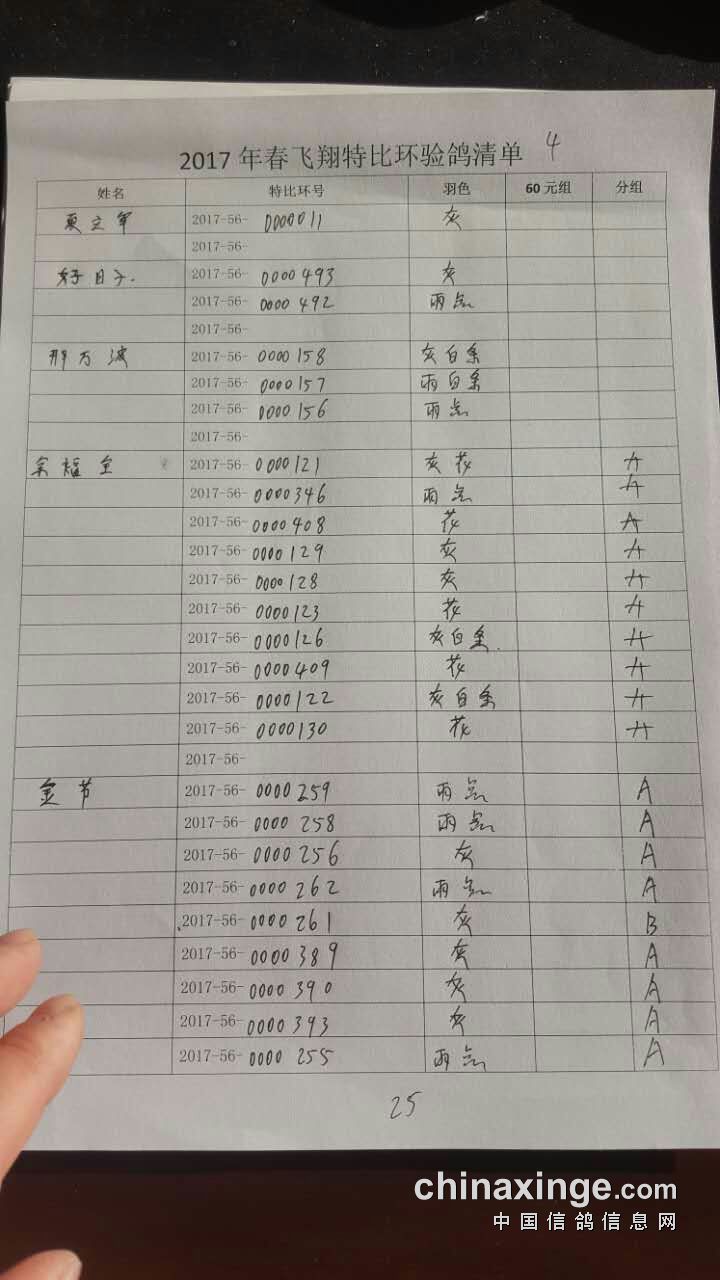 2017年春飞翔特比环验鸽清单 4
姓名 特比环号 羽色 60元组 分组
立军 2017-56- 0000011 灰
2017-56-
好日子. 2017-56- 0000493 灰
2017-56- 0000492 雨点
2017-56-
那万波 2017-56- 0000158 灰白条
2017-56- 0000157 雨白条
2017-56- 0000156 雨点
2017-56-
宗福全 2017-56- 0000121 灰花 A
2017-56- 0000346 雨点 A
2017-56- 0000408 花 A
2017-56- 0000129 灰 A
2017-56- 0000128 灰 A
2017-56- 0000123 花 A
2017-56- 0000126 灰白条. A
2017-56- 0000409 花 A
2017-56- 0000122 灰白条 A
2017-56- 0000130 花 A
2017-56-
金节 2017-56- 0000259 雨点 A
2017-56- 0000258 雨点 A
2017-56- 0000256 灰 A
2017-56- 0000262 雨点 A
2017-56- 0000261 灰 B
2017-56- 0000389 灰 A
2017-56- 0000390 灰 A
2017-56- 0000393 灰 A
2017-56- 0000255 雨点 A
25
chinaxinge.com
中国信鸽信息网